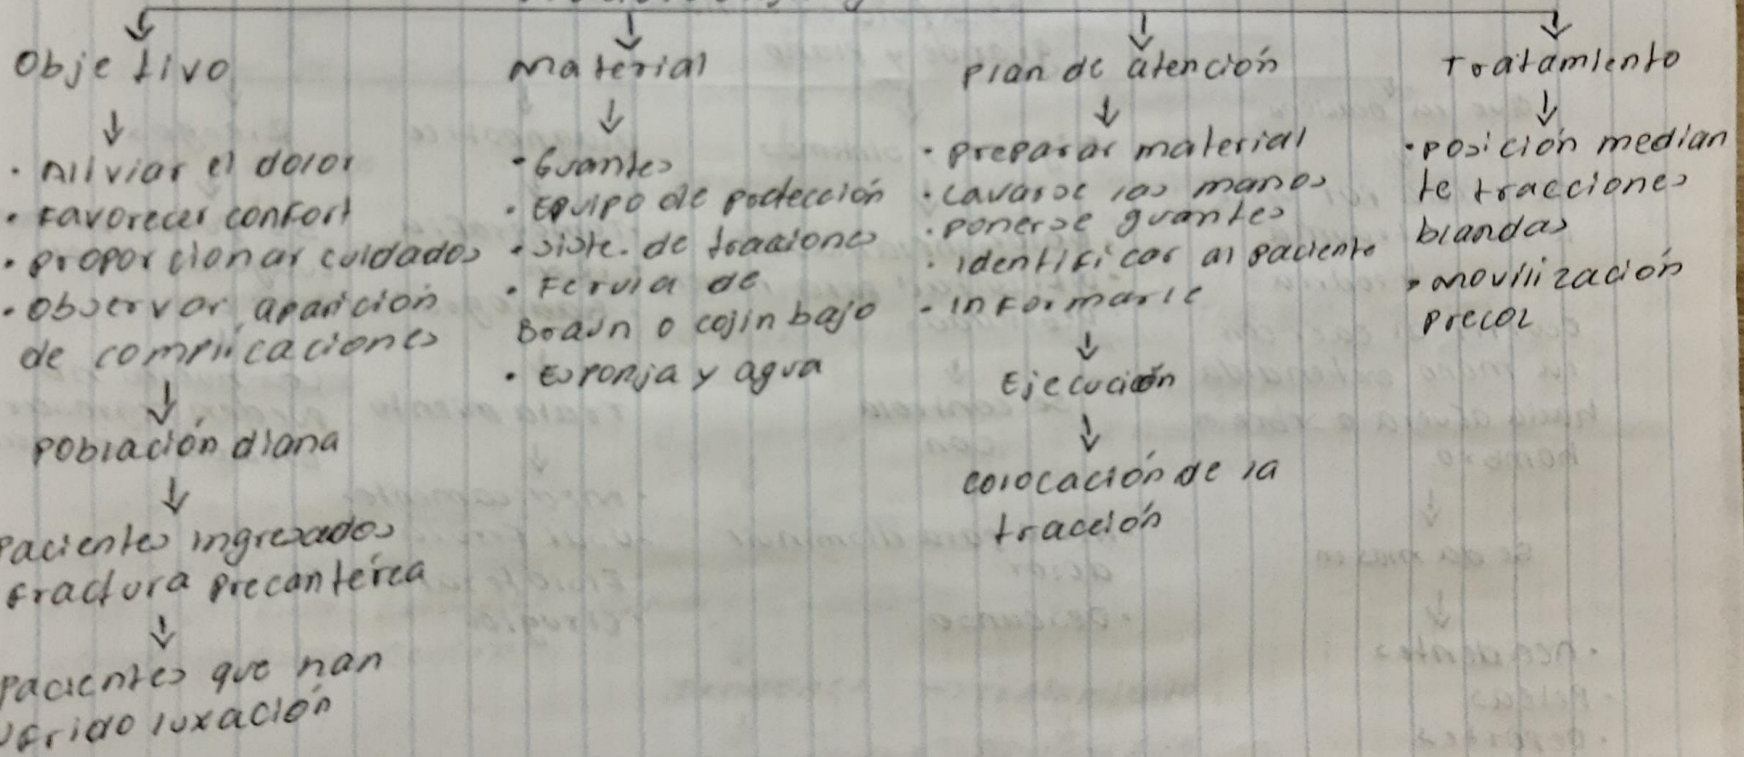 Objetivo
• Alliviar el dolor
• Favorecer confort
• proporcionar cuidados
• Observar aparición
de complicaciones
Población diana
Pacientes ingresados
Fractura precanterea
pacientes que han
ufrido luxación
Material
• Guantes
• Equipo de protección
• Siste. de tracciones
• Ferula de
Braun o cojin bajo
• Esponja y agua
Plan de atención
• preparar material
• Lavarse las manos
• ponerse guantes
• identificar al paciente
• informarle
Ejecución
Colocación de la
tracción
Tratamiento
• posición median
te tracciones
blandas
• movilización
precoz